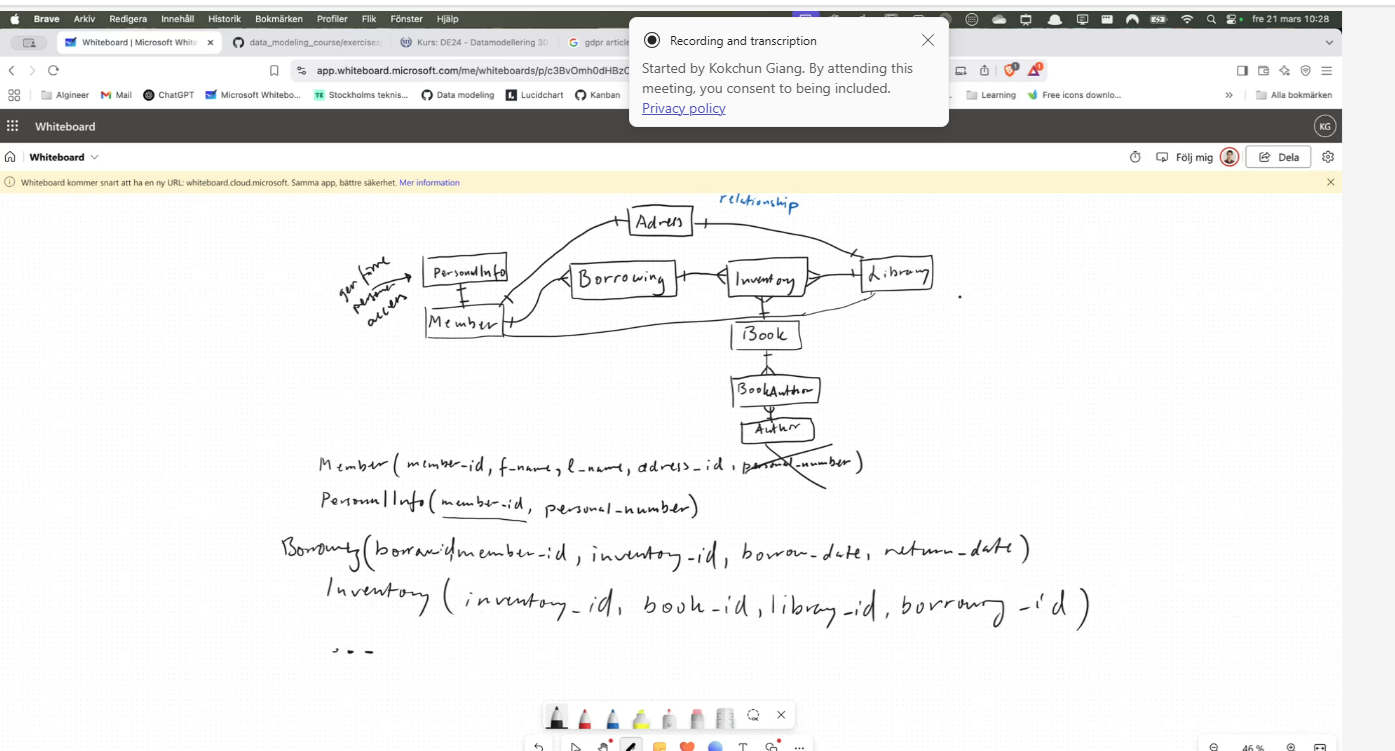 Brave Arkiv Redigera Innehåll Historik Bokmärken Profiler Flik Fönster Hjälp
fre 21 mars 10:28
Whiteboard | Microsoft White
data_modeling_course/exercises
Kurs: DE24 - Datamodellering 30
gdpr article
app.whiteboard.microsoft.com/me/whiteboards/p/c3BvOmh0dHBzO
Algineer Mail ChatGPT Microsoft Whitebo... Stockholms teknis... Data modeling Lucidchart Kanban
Learning Free icons downlo... » Alla bokmärken
Recording and transcription
Started by Kokchun Giang. By attending this
meeting, you consent to being included.
Privacy policy
Whiteboard
KG
Whiteboard
Följ mig
Dela
Whiteboard kommer snart att ha en ny URL: whiteboard.cloud.microsoft. Samma app, bättre säkerhet. Mer information
relationship
Adress
PersonalInfo
Borrowing
Inventory
Library
ger färre
personer
access
Member
Book
BookAuthor
Author
Member(member_id, f_name, l_name, adress_id, personal_number)
PersonalInfo(member_id, personal_number)
inventory_id, borrow_date, return_date)
Inventory (inventory_id, book_id, library_id, borrowing_id)
...
46 %